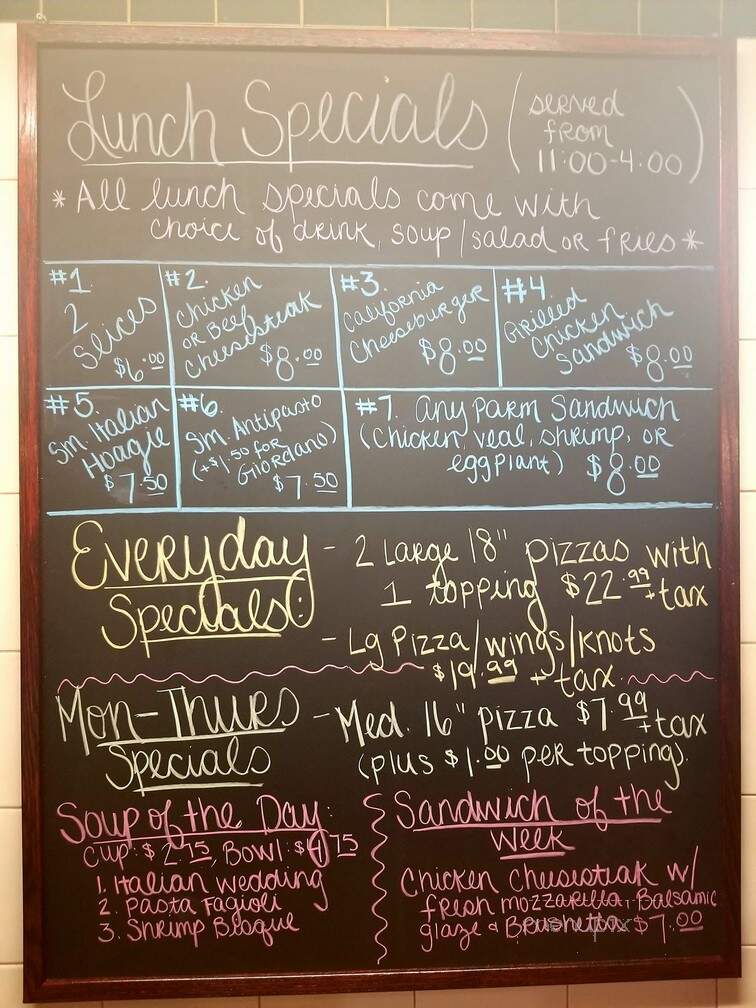 Lunch Specials (served from 11:00-4:00)
*All lunch specials come with
choice of drink, soup/salad or fries*
#1.
2
Slices
$6.00
#2.
Chicken
or Beef
Cheesesteak
$8.00
#3.
California
Cheeseburger
$8.00
#4
Grilled
Chicken
Sandwich
$8.00
#5.
Sm. Italian
Hoagie
$7.50
#6.
Sm. Antipasto
(+$1.50 for
Giordano)
$7.50
#7. Any Parm Sandwich
(Chicken, veal, shrimp, or
eggplant) $8.00
Everyday
Specials:
- 2 Large 18" pizzas with
1 topping $22.99 +tax
- Lg Pizza/wings/knots
$19.99 + tax
Mon-Thurs
Specials
- Med. 16" pizza $7.99 +tax
(plus $1.00 per topping).
Soup of the Day:
Cup: $2.75, Bowl: $4.75
1. Italian Wedding
2. Pasta Fagioli
3. Shrimp Bisque
Sandwich of the
Week
Chicken Cheesesteak w/
fresh mozzarella, Balsamic
glaze & Brushetta $7.00